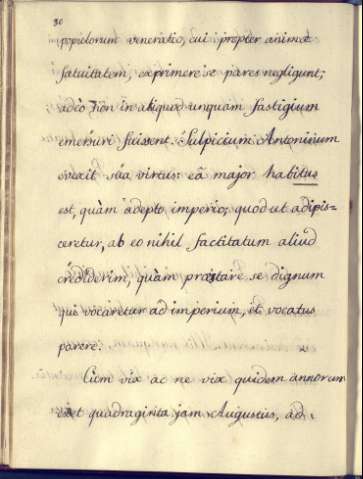 80
populorum veneratio, cui propter animæ
fatuitatem, exprimere se pares negligunt;
adeò non in aliquod unquam fastigium
emersuri fuissent. Sulpicium Antoninum
evexit sua virtus: eâ major habitus
est, quàm adepto imperio; quod ut adipis=
ceretur, ab eo nihil factitatum aliud
crediderim, quàm præstare se dignum
qui vocaretur ad imperium, et vocatus
parere.
Cùm vix ac ne vix quidem annorum
esset quadraginta jam Augustus, ad